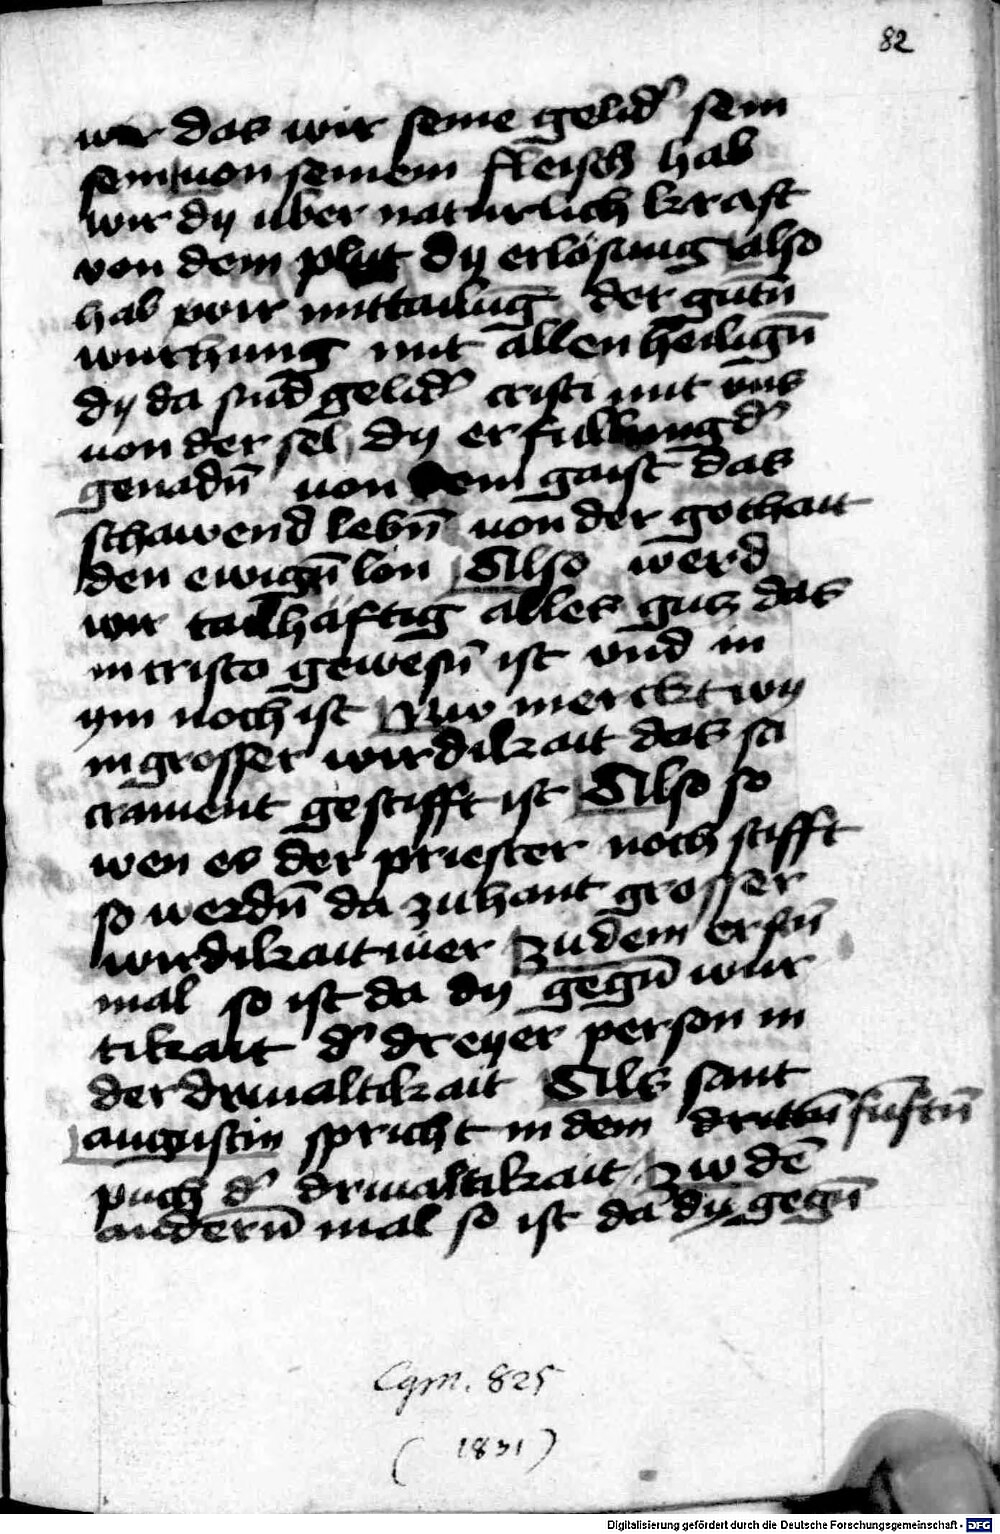 82
wir das wir seine gelid͛ sein
sein von seinem fleisch hab
wir dy uber naturlich kraft
von dem plut dy erlösung also
hab wir mittailūg der gutn̄
wurchung mit allen heilign̄
dy da sind gelid͛ cristi mit vns
von der sel dy erfullung d͛
genadn̄ von dem gaist das
schawend lebn̄ von der gothait
den ewign̄ lon Also werd
wir tailhaftig alles gutz das
in cristo gewesn̄ ist vnd in
ym noch ist Nw merckt wy
in grosser wirdikait das sa
crament gestifft ist Also so
wen es der priester noch stifft
so werdn̄ da zuhant grosser
wirdikait vier Zu dem erstn̄
mal so ist da dy gegn̄ wur
tikait d͛ dreyer person in
der drivaltikait Als sant
augustin spricht in dem funftn̄
puch d͛ drivaltikait zw dē
andern̄ mal so ist da dy gegn̄
Cgm. 825
(1831)
Digitalisierung gefördert durch die Deutsche Forschungsgemeinschaft - DFG